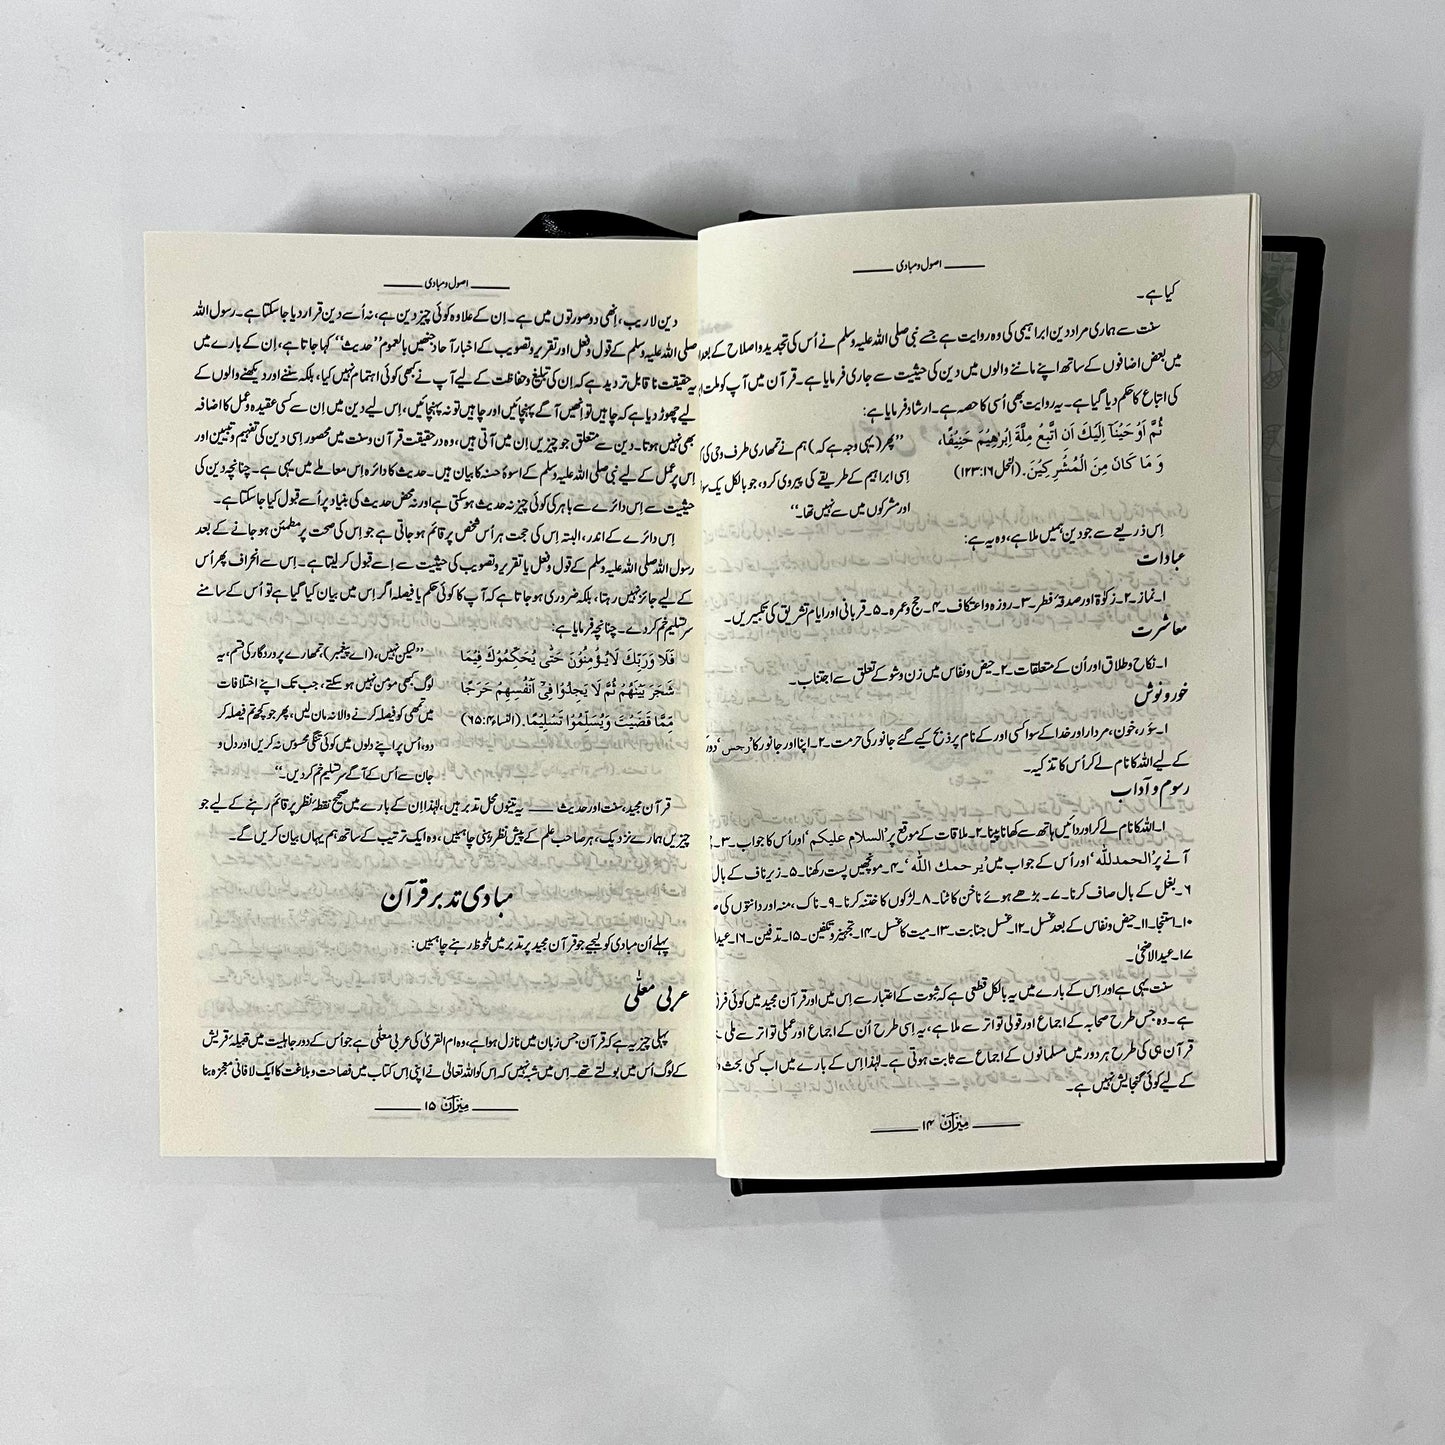 اصول و مبادی
کیا ہے۔
سنت سے ہماری مراد دین ابراہیمی کی وہ روایت ہے جسے نبی صلی اللہ علیہ وسلم نے اُس کی تجدید و اصلاح کے بعد
میں بعض اضافوں کے ساتھ اپنے ماننے والوں میں دین کی حیثیت سے جاری فرمایا ہے۔ قرآن میں آپ کو ملت
کی اتباع کا حکم دیا گیا ہے۔ یہ روایت بھی اُسی کا حصہ ہے۔ ارشاد فرمایا ہے:
ثُمَّ اَوْحَيْنَآ اِلَيْكَ اَنِ اتَّبِعْ مِلَّةَ اِبْرٰهِيْمَ حَنِيْفًا،
وَ مَا كَانَ مِنَ الْمُشْرِكِيْنَ. (النحل ۱۶: ۱۲۳)
”پھر (یہی وجہ ہے کہ) ہم نے تمھاری طرف وحی کی
اسی ابراہیم کے طریقے کی پیروی کرو، جو بالکل یک سو
اور مشرکوں میں سے نہیں تھا۔“
اِس ذریعے سے جو دین ہمیں ملا ہے، وہ یہ ہے:
عبادات
۱۔ نماز۔ ۲۔ زکوٰۃ اور صدقۂ فطر۔ ۳۔ روزہ و اعتکاف۔ ۴۔ حج و عمرہ۔ ۵۔ قربانی اور ایام تشریق کی تکبیریں۔
معاشرت
۱۔ نکاح و طلاق اور اُن کے متعلقات۔ ۲۔ حیض و نفاس میں زن و شو کے تعلق سے اجتناب۔
خور و نوش
۱۔ سؤر، خون، مردار اور خدا کے سوا کسی اور کے نام پر ذبح کیے گئے جانور کی حرمت۔ ۲۔ اپنا اور جانور کا ’رجس‘
کے لیے اللہ کا نام لے کر اُس کا تذکیہ۔
رسوم و آداب
۱۔ اللہ کا نام لے کر اور دائیں ہاتھ سے کھانا پینا۔ ۲۔ ملاقات کے موقع پر ’السلام علیکم‘ اور اُس کا جواب۔ ۳۔
آنے پر ’الحمد للہ‘ اور اُس کے جواب میں ’یرحمك اللہ‘۔ ۴۔ مونچھیں پست رکھنا۔ ۵۔ زیر ناف کے بال
۶۔ بغل کے بال صاف کرنا۔ ۷۔ بڑھے ہوئے ناخن کاٹنا۔ ۸۔ لڑکوں کا ختنہ کرنا۔ ۹۔ ناک، منہ اور دانتوں کی
۱۰۔ استنجا۔ ۱۱۔ حیض و نفاس کے بعد غسل۔ ۱۲۔ غسل جنابت۔ ۱۳۔ میت کا غسل۔ ۱۴۔ تجہیز و تکفین۔ ۱۵۔ تدفین۔ ۱۶۔
۱۷۔ عید الاضحیٰ۔
سنت یہی ہے اور اِس کے بارے میں یہ بالکل قطعی ہے کہ ثبوت کے اعتبار سے اِس میں اور قرآن مجید میں کوئی
ہے۔ وہ جس طرح صحابہ کے اجماع اور قولی تواتر سے ملا ہے، یہ اِسی طرح اُن کے اجماع اور عملی تواتر سے ملی
قرآن ہی کی طرح ہر دور میں مسلمانوں کے اجماع سے ثابت ہوتی ہے۔ لہٰذا اِس کے بارے میں اب کسی بحث
کے لیے کوئی گنجایش نہیں ہے۔
میزان ۱۴
اصول و مبادی
دین لاریب، اِنھی دو صورتوں میں ہے۔ اِن کے علاوہ کوئی چیز دین ہے، نہ اُسے دین قرار دیا جا سکتا ہے۔ رسول اللہ
صلی اللہ علیہ وسلم کے قول و فعل اور تقریر و تصویب کے اخبار آحاد جنھیں بالعموم ”حدیث“ کہا جاتا ہے، اِن کے بارے میں
یہ حقیقت ناقابل تردید ہے کہ اِن کی تبلیغ و حفاظت کے لیے آپ نے کبھی کوئی اہتمام نہیں کیا، بلکہ سننے اور دیکھنے والوں کے
لیے چھوڑ دیا ہے کہ چاہیں تو اِنھیں آگے پہنچائیں اور چاہیں تو نہ پہنچائیں، اِس لیے دین میں اِن سے کسی عقیدہ و عمل کا اضافہ
بھی نہیں ہوتا۔ دین سے متعلق جو چیزیں اِن میں آتی ہیں، وہ درحقیقت قرآن و سنت میں محصور اِسی دین کی تفہیم و تبیین اور
اِس پر عمل کے لیے نبی صلی اللہ علیہ وسلم کے اسوۂ حسنہ کا بیان ہیں۔ حدیث کا دائرہ اِس معاملے میں یہی ہے۔ چنانچہ دین کی
حیثیت سے اِس دائرے سے باہر کی کوئی چیز نہ حدیث ہو سکتی ہے اور نہ محض حدیث کی بنیاد پر اُسے قبول کیا جا سکتا ہے۔
اِس دائرے کے اندر، البتہ اِس کی حجت ہر اُس شخص پر قائم ہو جاتی ہے جو اِس کی صحت پر مطمئن ہو جانے کے بعد
رسول اللہ صلی اللہ علیہ وسلم کے قول و فعل یا تقریر و تصویب کی حیثیت سے اِسے قبول کر لیتا ہے۔ اِس سے انحراف پھر اُس
کے لیے جائز نہیں رہتا، بلکہ ضروری ہو جاتا ہے کہ آپ کا کوئی حکم یا فیصلہ اگر اِس میں بیان کیا گیا ہے تو اُس کے سامنے
سر تسلیم خم کر دے۔ چنانچہ فرمایا ہے:
فَلَا وَرَبِّكَ لَا يُؤْمِنُوْنَ حَتّٰى يُحَكِّمُوْكَ فِيْمَا
شَجَرَ بَيْنَهُمْ ثُمَّ لَا يَجِدُوْا فِىْٓ اَنْفُسِهِمْ حَرَجًا
مِّمَّا قَضَيْتَ وَيُسَلِّمُوْا تَسْلِيْمًا. (النساء ۴: ۶۵)
”لیکن نہیں، (اے پیغمبر) تمھارے پروردگار کی قسم، یہ
لوگ کبھی مومن نہیں ہو سکتے، جب تک اپنے اختلافات
میں تمھی کو فیصلہ کرنے والا نہ مان لیں، پھر جو کچھ تم فیصلہ کر
دو، اُس پر اپنے دلوں میں کوئی تنگی محسوس نہ کریں اور دل و
جان سے اُس کے آگے سر تسلیم خم کر دیں۔“
قرآن مجید، سنت اور حدیث —— یہ تینوں محل تدبر ہیں، لہٰذا اِن کے بارے میں صحیح نقطۂ نظر پر قائم رہنے کے لیے جو
چیزیں ہمارے نزدیک، ہر صاحب علم کے پیش نظر رہنی چاہییں، وہ ایک ترتیب کے ساتھ ہم یہاں بیان کریں گے۔
مبادی تدبر قرآن
پہلے اُن مبادی کو لیجیے جو قرآن مجید پر تدبر میں ملحوظ رہنے چاہییں:
عربی معلّٰی
پہلی چیز یہ ہے کہ قرآن جس زبان میں نازل ہوا ہے، وہ ام القریٰ کی عربی معلّٰی ہے جو اُس کے دور جاہلیت میں قبیلۂ قریش
کے لوگ اُس میں بولتے تھے۔ اِس میں شبہ نہیں کہ اِس کو اللہ تعالیٰ نے اپنی اِس کتاب میں فصاحت و بلاغت کا ایک لافانی معجزہ بنا
میزان ۱۵